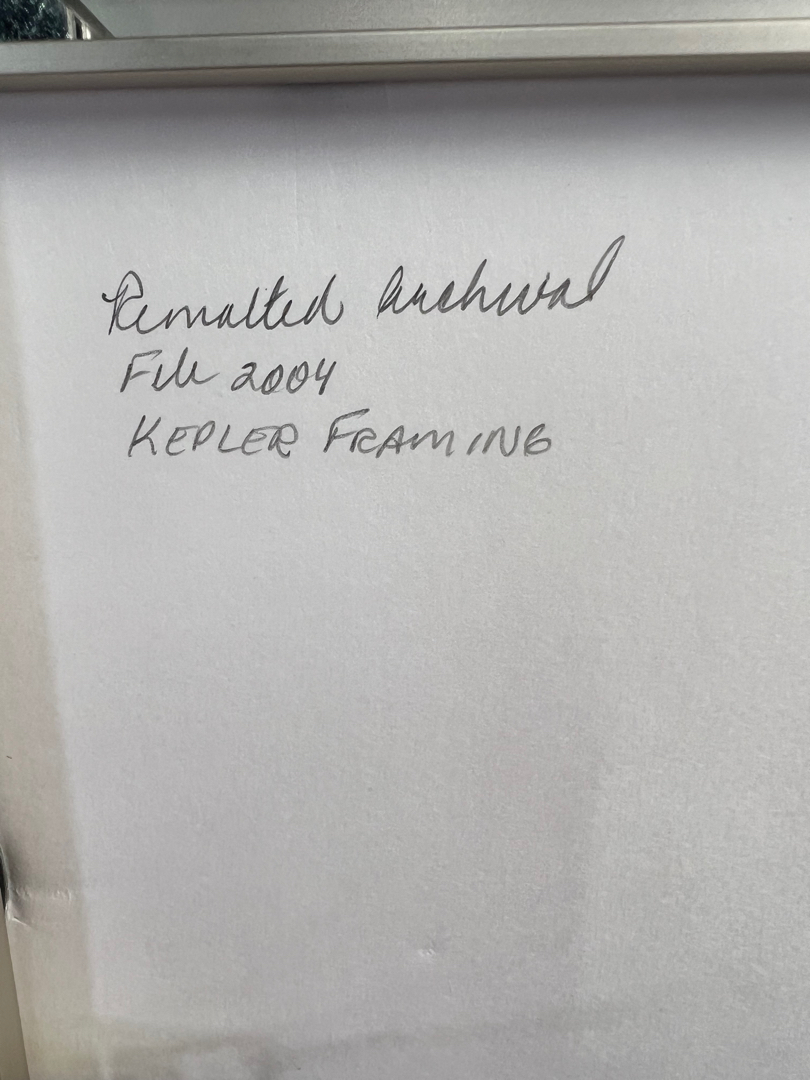 Rematted Archival
Feb 2004
KEPLER FRAMING